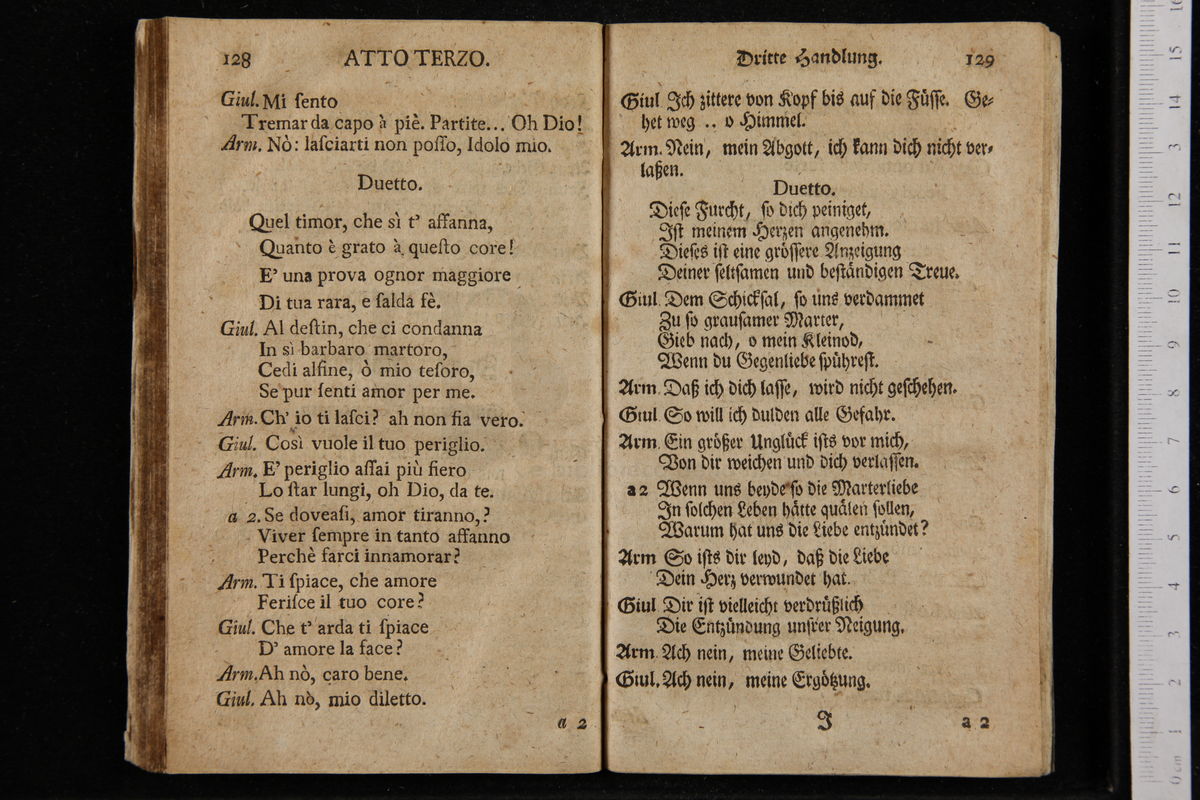 128 ATTO TERZO.
Giul. Mi ſento
Tremar da capo à piè. Partite... Oh Dio!
Arm. Nò: laſciarti non poſſo, Idolo mio.
Duetto.
Quel timor, che sì t' affanna,
Quanto è grato à queſto core!
E' una prova ognor maggiore
Di tua rara, e ſalda fè.
Giul. Al deſtin, che ci condanna
In sì barbaro martoro,
Cedi alfine, ò mio teſoro,
Se pur ſenti amor per me.
Arm. Ch' io ti laſci? ah non fia vero.
Giul. Così vuole il tuo periglio.
Arm. E' periglio aſſai più fiero
Lo ſtar lungi, oh Dio, da te.
a 2. Se doveaſi, amor tiranno,?
Viver ſempre in tanto affanno
Perchè farci innamorar?
Arm. Ti ſpiace, che amore
Feriſce il tuo core?
Giul. Che t' arda ti ſpiace
D' amore la face?
Arm. Ah nò, caro bene.
Giul. Ah nò, mio diletto.
a 2
Dritte Handlung. 129
Giul Ich zittere von Kopf bis auf die Füſſe. Ge-
het weg .. o Himmel.
Arm. Nein, mein Abgott, ich kann dich nicht ver-
laßen.
Duetto.
Dieſe Furcht, ſo dich peiniget,
Iſt meinem Herzen angenehm.
Dieſes iſt eine gröſſere Anzeigung
Deiner ſeltſamen und beſtändigen Treue.
Giul. Dem Schickſal, ſo uns verdammet
Zu ſo grauſamer Marter,
Gieb nach, o mein Kleinod,
Wenn du Gegenliebe ſpühreſt.
Arm. Daß ich dich laſſe, wird nicht geſchehen.
Giul So will ich dulden alle Gefahr.
Arm. Ein größer Unglück iſts vor mich,
Von dir weichen und dich verlaſſen.
a 2 Wenn uns beyde ſo die Marterliebe
In ſolchen Leben hätte quälen ſollen,
Warum hat uns die Liebe entzündet?
Arm So iſts dir leyd, daß die Liebe
Dein Herz verwundet hat.
Giul. Dir iſt vielleicht verdrüßlich
Die Entzündung unſrer Neigung.
Arm. Ach nein, meine Geliebte.
Giul. Ach nein, meine Ergötzung.
J a 2